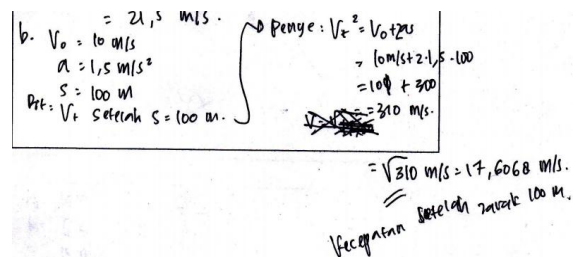 = 21,5 m/s.
b. Vo = 10 m/s
a = 1,5 m/s²
S = 100 m
Dit: Vt setelah S = 100 m.
Penye: Vt² = Vo + 2as
= 10 m/s + 2·1,5·100
= 10 + 300
= 310 m/s.
= √310 m/s = 17,6068 m/s.
Kecepatan setelah jarak 100 m.